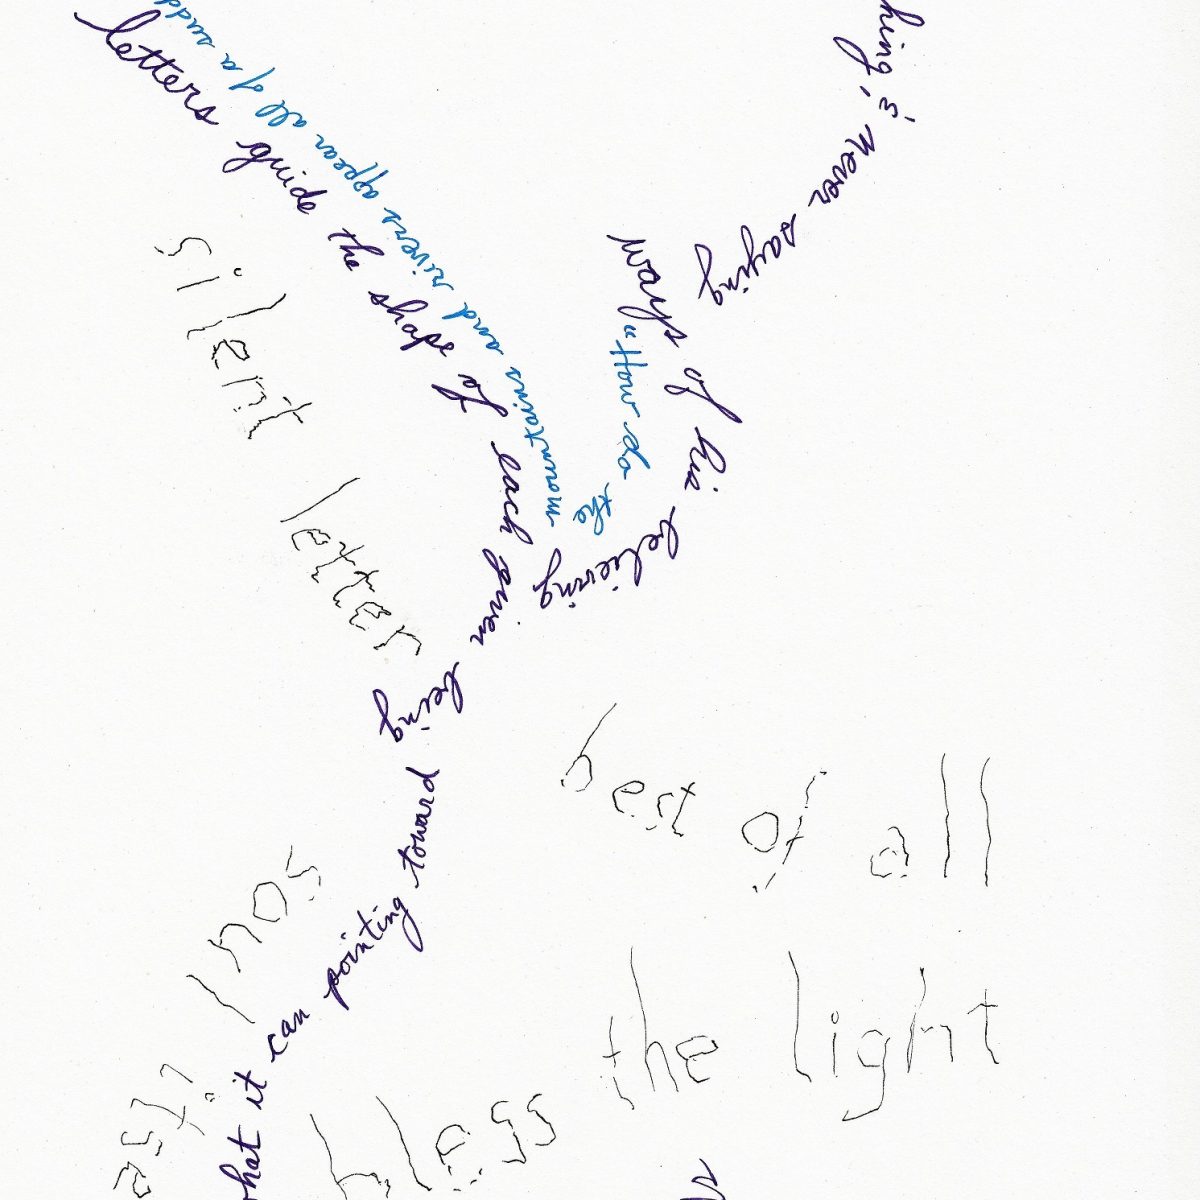 mountains and rivers appear all of a sudd
letters guide the shape of each given being pointing toward
what it can
hing, & never saying
ways of his believing
"How do the
silent letter
soul
itse
best of all
bless the light